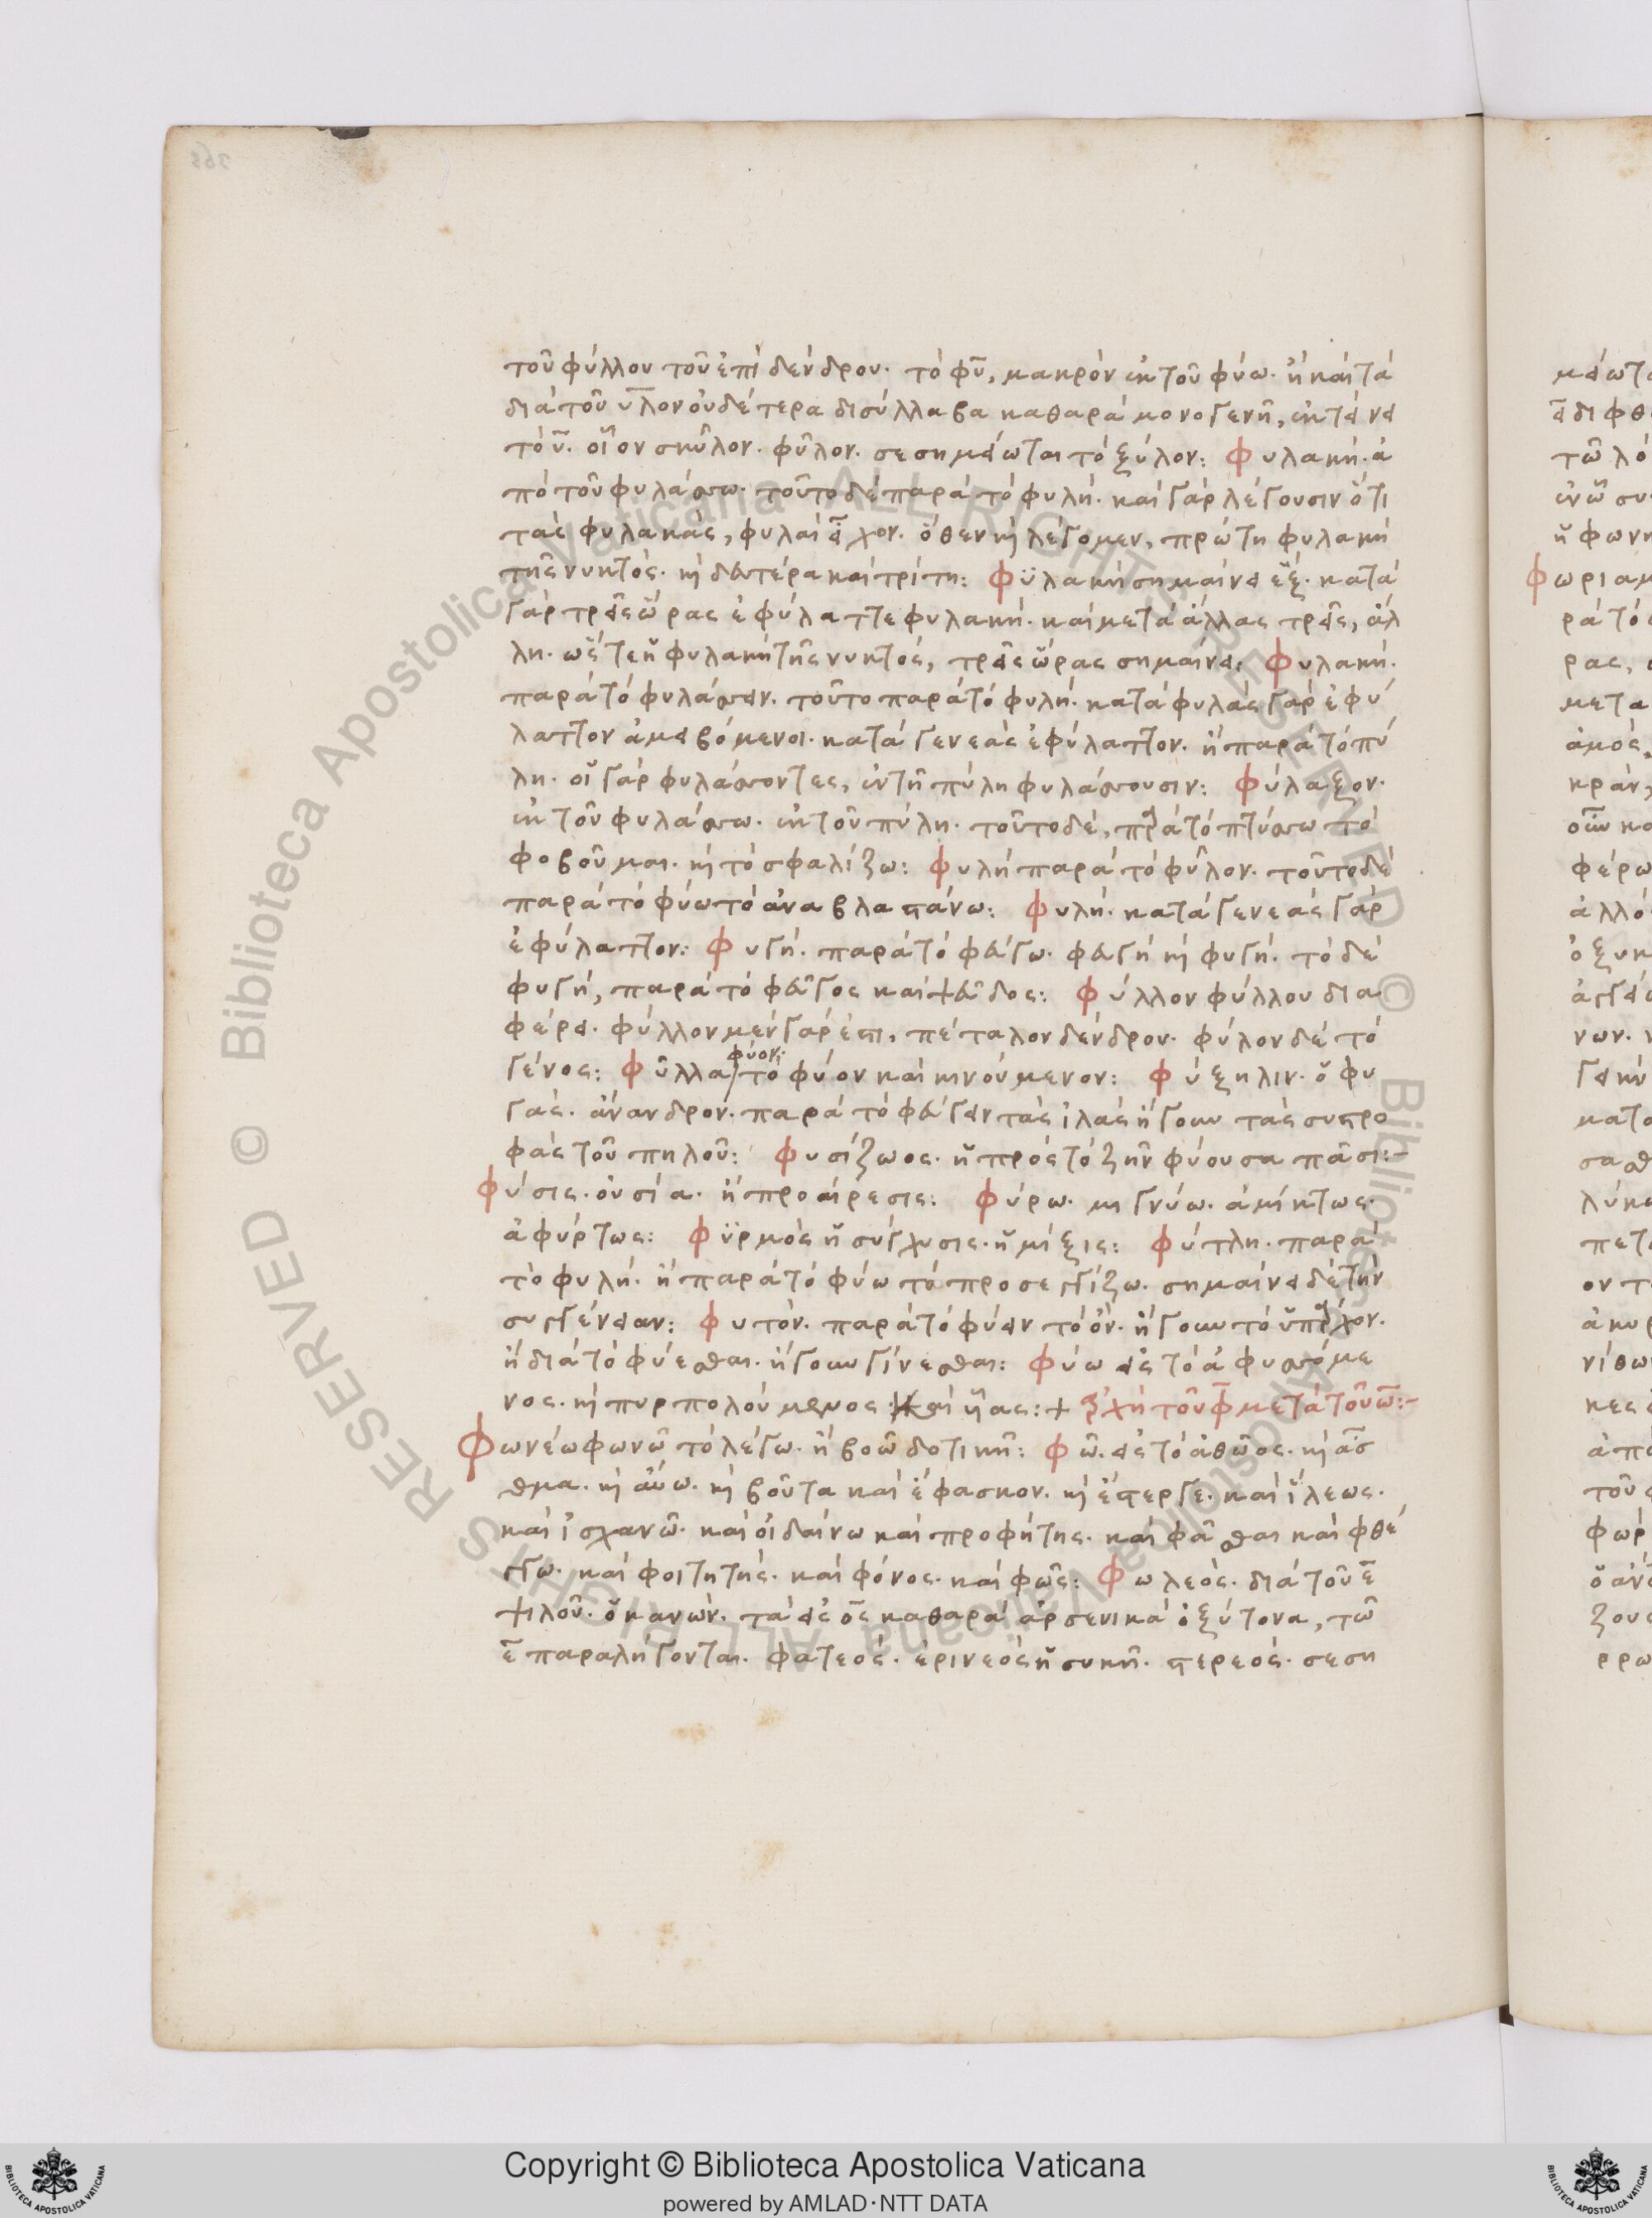 τοῦ φύλλου τοῦ ἐπὶ δένδρου· τὸ φῦ, μακρὸν ἐκ τοῦ φύω· ἢ καὶ τὰ
διὰ τοῦ υλον οὐδέτερα δισύλλαβα καθαρὰ μονογενῆ, ἐκτείνει
τὸ υ· οἷον σκῦλον· φῦλον· σεσημείωται τὸ ξύλον: Φυλακή· ἀ
πὸ τοῦ φυλάσσω· τοῦτο δὲ παρὰ τὸ φυλή· καὶ γὰρ λέγουσιν ὅτι
τὰς φυλακὰς, φυλαὶ εἶχον· ὅθεν καὶ λέγομεν, πρώτη φυλακὴ
τῆς νυκτός· καὶ δευτέρα καὶ τρίτη: Φϋλακὴ σημαίνει ἕξ· κατὰ
γὰρ τρεῖς ὥρας ἐφύλαττε φυλακή· καὶ μετὰ ἄλλας τρεῖς, ἄλ
λη· ὥστε ἡ φυλακὴ τῆς νυκτὸς, τρεῖς ὥρας σημαίνει: Φυλακή·
παρὰ τὸ φυλάσσειν· τοῦτο παρὰ τὸ φυλή· κατὰ φυλὰς γὰρ ἐφύ
λαττον ἀμειβόμενοι· κατὰ γενεὰς ἐφύλαττον· ἢ παρὰ τὸ πύ
λη· οἱ γὰρ φυλάσσοντες, ἐν τῇ πύλῃ φυλάσσουσιν: Φύλαξον·
ἐκ τοῦ φυλάσσω· ἐκ τοῦ πύλη· τοῦτο δὲ, παρὰ τὸ πτύσσω τὸ
φοβοῦμαι· καὶ τὸ σφαλίζω: Φυλὴ παρὰ τὸ φῦλον· τοῦτο δὲ
παρὰ τὸ φύω τὸ ἀναβλαστάνω: Φυλή· κατὰ γενεὰς γὰρ
ἐφύλαττον: Φυγή· παρὰ τὸ φεύγω· φευγὴ καὶ φυγή· τὸ δὲ
φυγὴ, παρὰ τὸ φεῦγος καὶ ψεῦδος: Φύλλον φύλλου δια
φέρει· φύλλον μὲν γάρ ἐστι, πέταλον δένδρον· φύλον δὲ τὸ
γένος: Φῦλλα τὸ φύον καὶ κινούμενον: Φύξηλιν· ὁ φυ
φύον·
γὰς· ἄνανδρον· παρὰ τὸ φεύγειν τὰς ἰλὰς ἤγουν τὰς συστρο
φὰς τοῦ πηλοῦ: Φυσίζωος· ἡ πρὸς τὸ ζῆν φύουσα πᾶσι:-
Φύσις· οὐσία· ἢ προαίρεσις: Φύρω· μιγνύω· ἀμίκτως·
ἀφύρτως: Φϋρμὸς ἡ σύγχυσις· ἡ μίξις: Φύτλη· παρὰ
τὸ φυλή· ἢ παρὰ τὸ φύω τὸ προσεγγίζω· σημαίνει δὲ τὴν
συγγένειαν: Φυτόν· παρὰ τὸ φύειν τὸ ὄν· ἤγουν τὸ ὑπάρχον·
ἢ διὰ τὸ φύεσθαι· ἤγουν γίνεσθαι: Φύω εἰς τὸ ἀφυσσόμε
νος· καὶ πυρπολούμενος καὶ ἥας:+ Ἀρχὴ τοῦ φ μετὰ τοῦ ω:-
Φωνέω φωνῶ τὸ λέγω· ἢ βοῶ δοτικῇ: Φῶ· εἰς τὸ ἀθῶος· καὶ ἆσ
θμα· καὶ αὔω· καὶ βοῦτα καὶ ἔφασκον· καὶ ἔστεργε· καὶ ἵλεως·
καὶ ἰσχανῶ· καὶ οἰδαίνω καὶ προφήτης· καὶ φᾶσθαι καὶ φθέ
γγω· καὶ φοιτητής· καὶ φόνος· καὶ φῶς: Φωλεός· διὰ τοῦ ε
ψιλοῦ· ὁ κανών· τὰ εἰς ος καθαρὰ ἀρσενικὰ ὀξύτονα, τῶ
ε παραλήγονται· φατεός· ἐρινεὸς ἡ συκῆ· στερεός· σεση
Copyright © Biblioteca Apostolica Vaticana
powered by AMLAD·NTT DATA